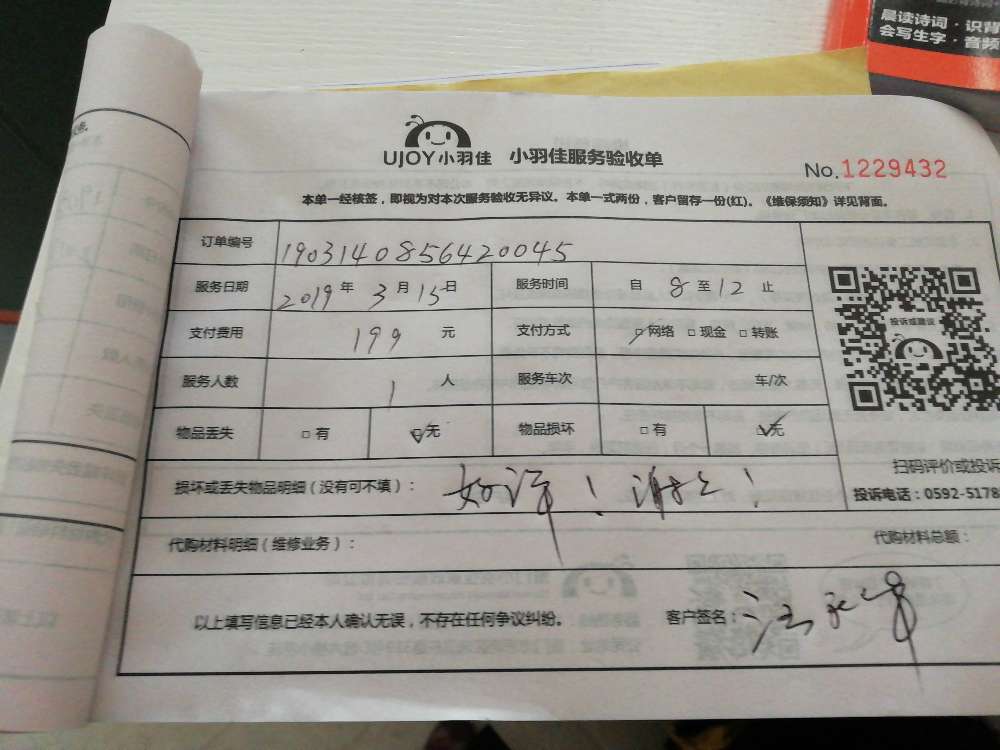 晨读诗词·识背
会写生字·音频
UJOY小羽佳 小羽佳服务验收单
No.1229432
本单一经核签，即视为对本次服务验收无异议。本单一式两份，客户留存一份(红)。《维保须知》详见背面。
订单编号 190314085642 0045
服务日期 2019年3月15日 服务时间 自 8 至 12 止
支付费用 199 元 支付方式 □网络 □现金 □转账
投诉或建议
服务人数 1 人 服务车次 车/次
物品丢失 □有 □无 物品损坏 □有 □无
扫码评价或投诉
损坏或丢失物品明细（没有可不填）： 好评！谢谢！
投诉电话：0592-5178
代购材料明细（维修业务）： 代购材料总额：
以上填写信息已经本人确认无误，不存在任何争议纠纷。 客户签名：